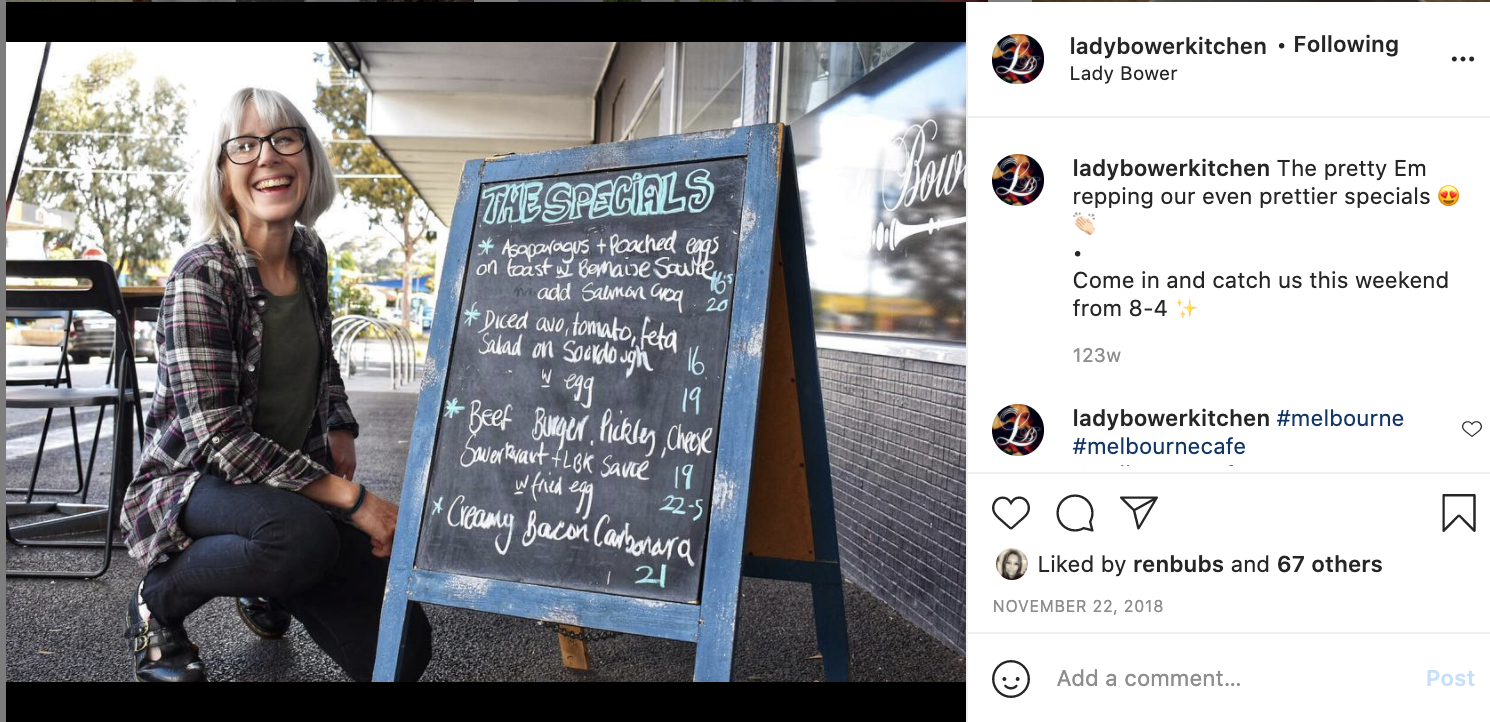 THE SPECIALS
* Asaparagus + Poached eggs
on toast w Bernaise Sauce
16.5
add Salmon Croq 20
* Diced avo, tomato, feta
Salad on Sourdough 16
w egg 19
* Beef Burger, Pickles, Cheese
Sauerkraut + LBK Sauce 19
w fried egg 22-5
* Creamy Bacon Carbonara
21
Bow
ladybowerkitchen • Following
Lady Bower
...
ladybowerkitchen The pretty Em
repping our even prettier specials 😍
👏🏻
•
Come in and catch us this weekend
from 8-4 ✨
123w
ladybowerkitchen #melbourne
#melbournecafe
Liked by renbubs and 67 others
NOVEMBER 22, 2018
Add a comment... Post